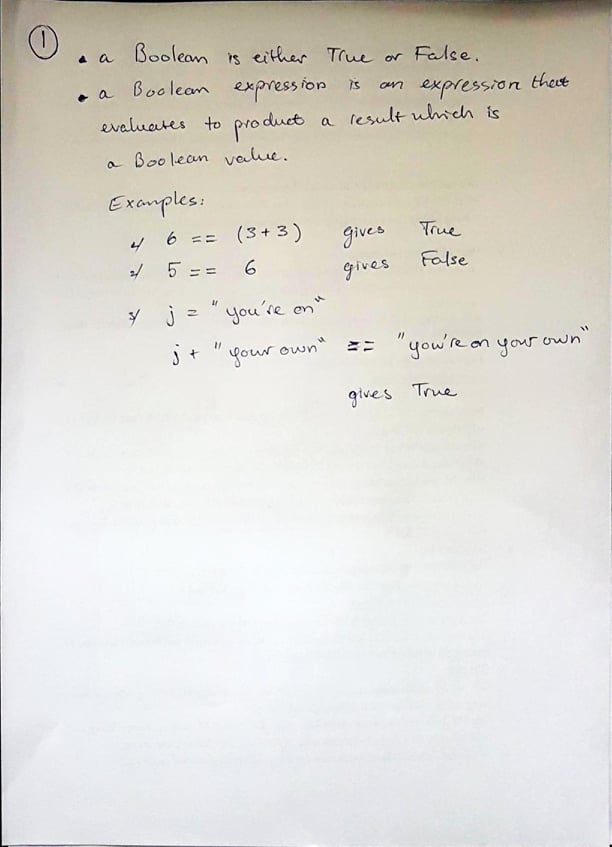 1
• a Boolean is either True or False.
• a Boolean expression is an expression that
evaluates to product a result which is
a Boolean value.
Examples:
1/ 6 == (3+3) gives True
2/ 5 == 6 gives False
3/ j = "you're on"
j + "your own" == "you're on your own"
gives True